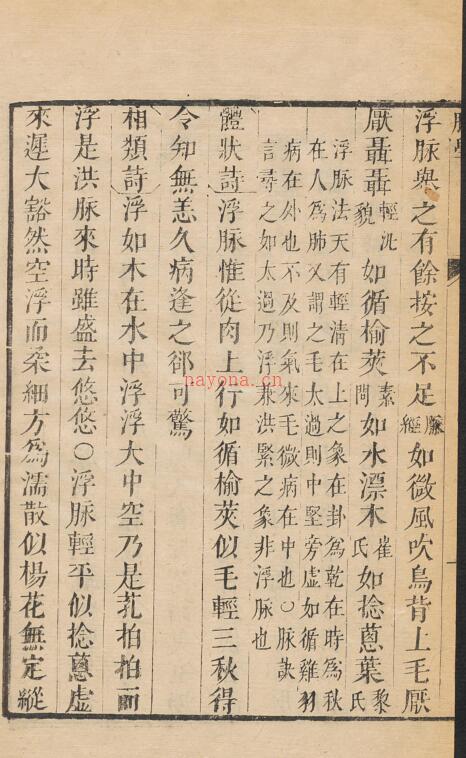 浮脉與之有餘按之不足脈經如微風吹鳥背上毛厭
厭聶聶輕汎貌如循榆莢素問如水漂木崔氏如捻葱葉黎氏
浮脉法天有輕清在上之象在卦爲乾在時爲秋
在人爲肺又謂之毛太過則中堅旁虛如循雞羽
病在外也不及則氣來毛微病在中也○脉訣
言尋之如太過乃浮兼洪緊之象非浮脉也
體狀詩浮脉惟從肉上行如循榆莢似毛輕三秋得
令知無恙久病逢之郤可驚
相類詩浮如木在水中浮浮大中空乃是芤拍拍而
浮是洪脉來時雖盛去悠悠○浮脉輕平似捻葱虛
來遲大豁然空浮而柔細方爲濡散似楊花無定蹤
nayona.cn